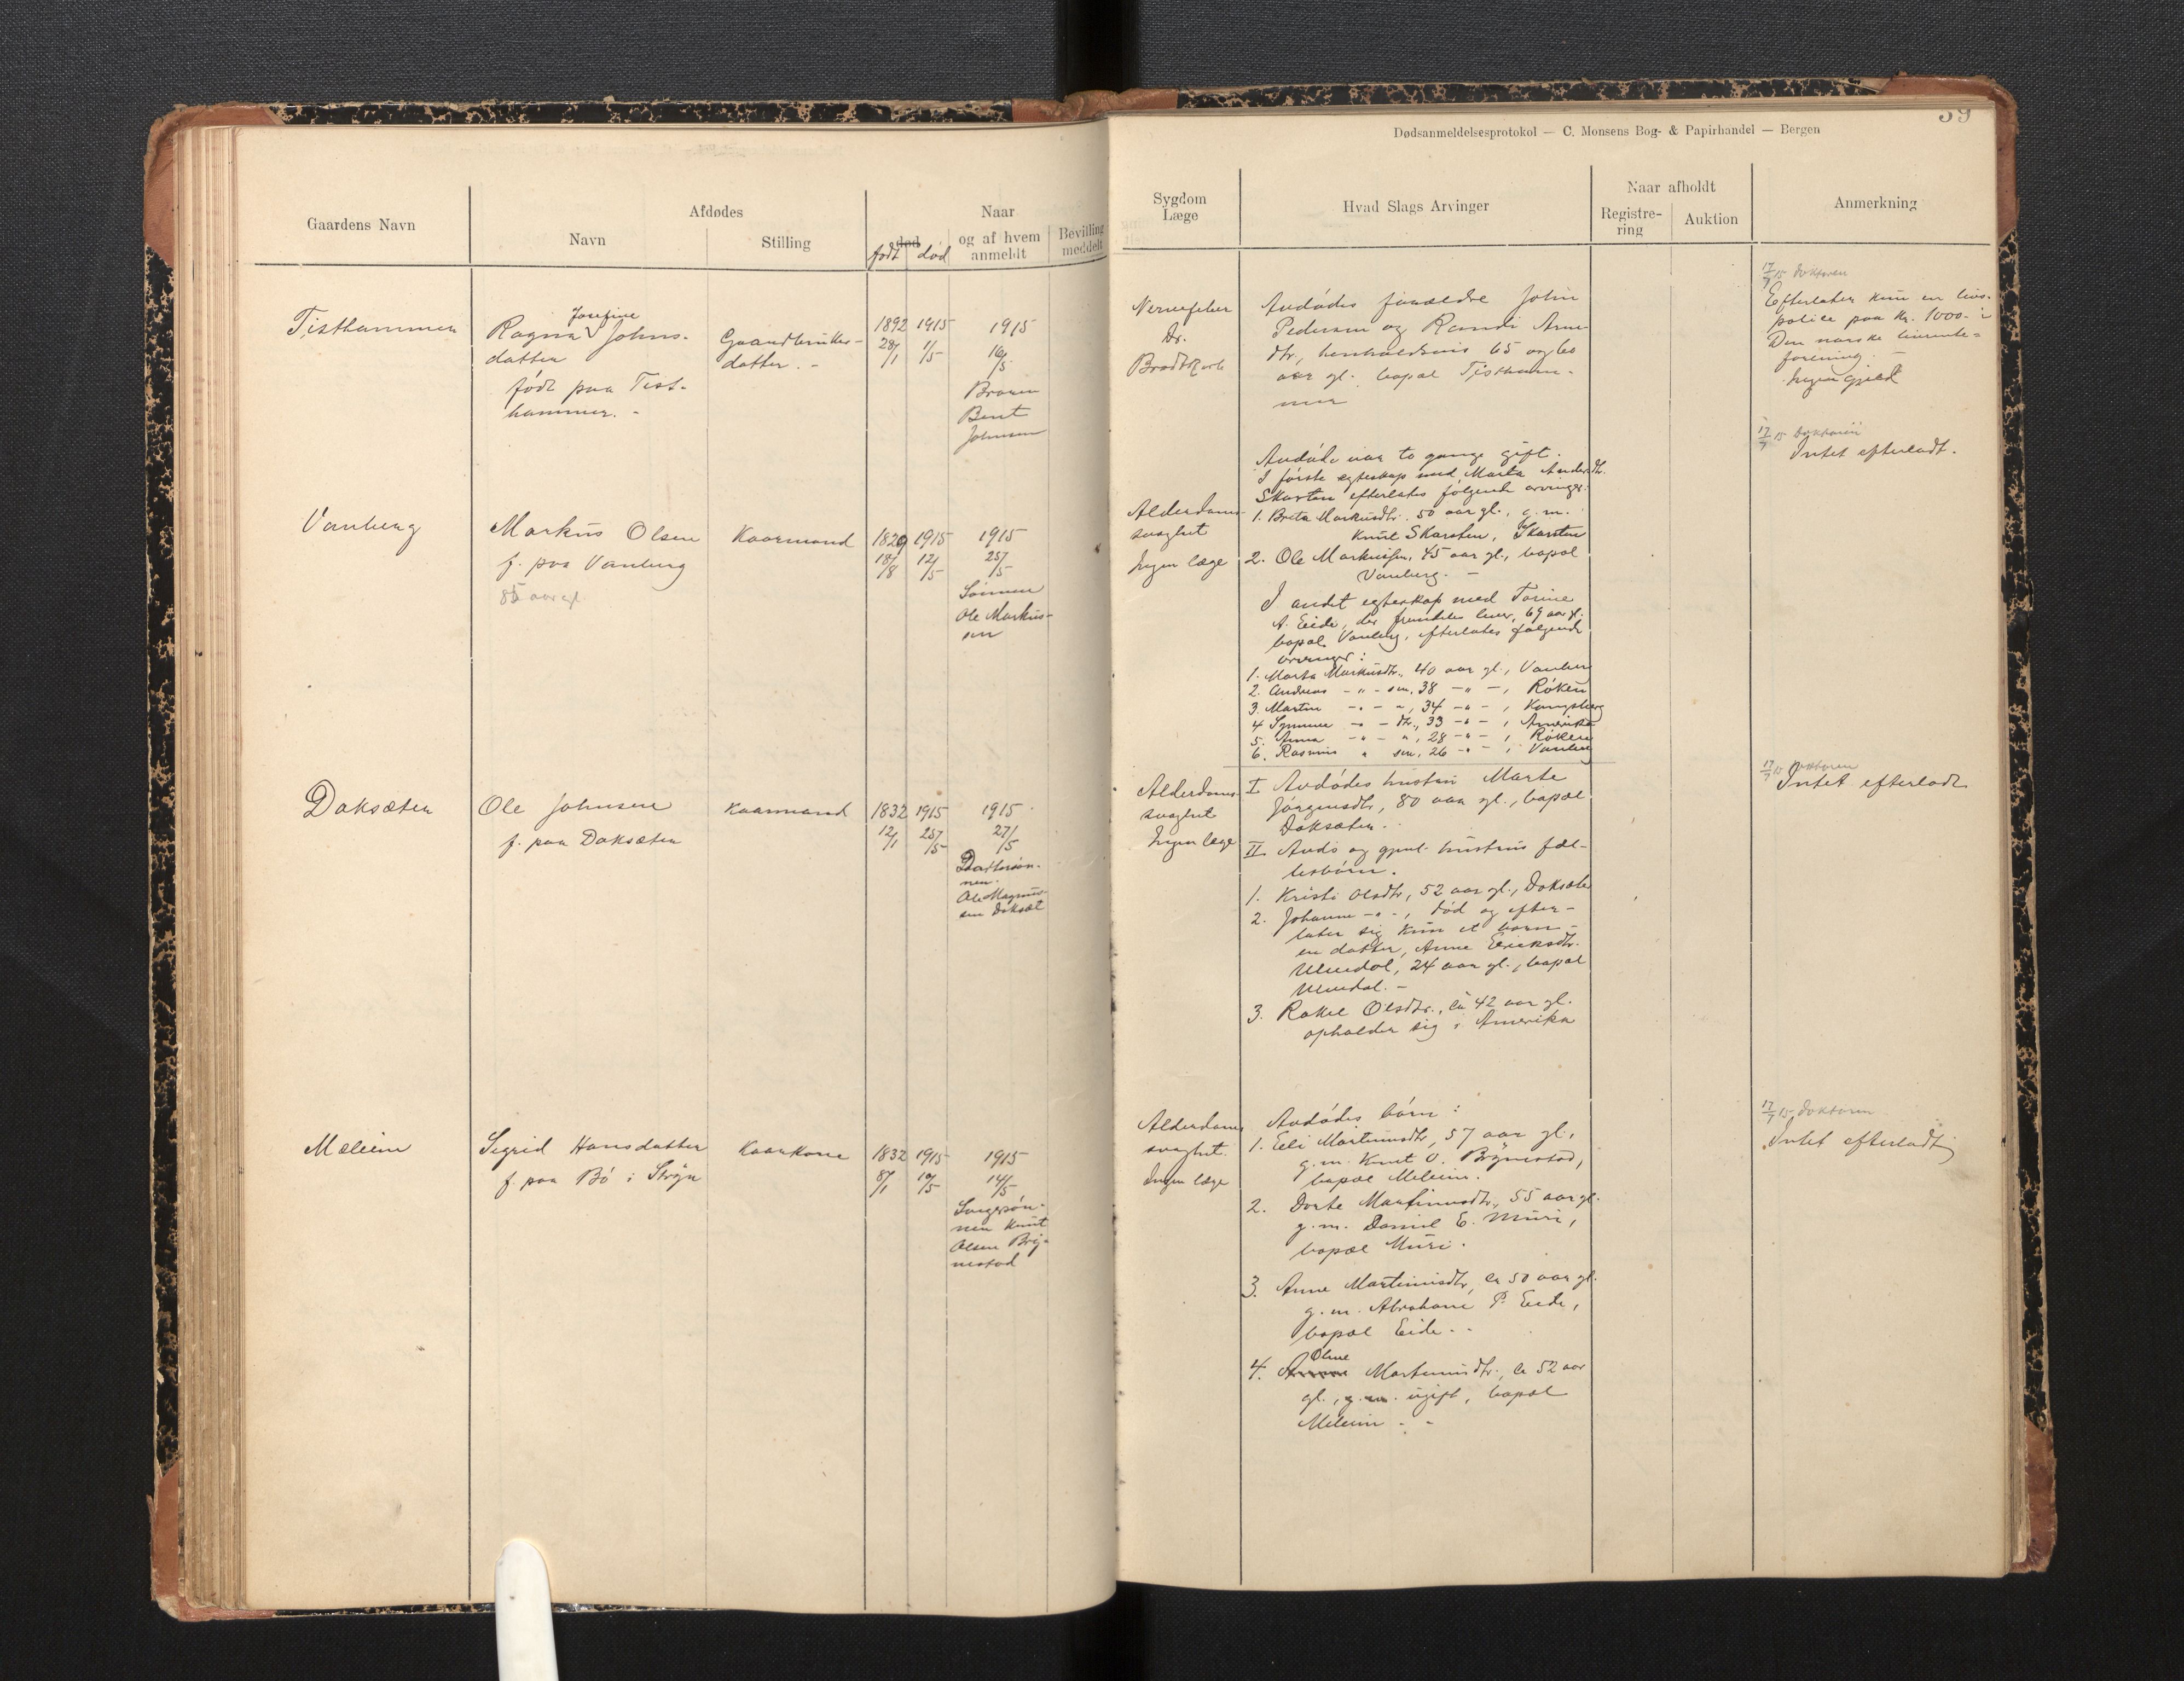 59
Dødsanmeldelsesprotokol — C. Monsens Bog- & Papirhandel — Bergen
Gaardens Navn
Afdødes
Navn
Stilling
død
født død
Naar
og af hvem
anmeldt
Bevilling
meddelt
Sygdom
Læge
Hvad Slags Arvinger
Naar afholdt
Registre-
ring
Auktion
Anmerkning
Tisthammer
Josefine
Ragna Johns-
datter
født paa Tist-
hammer. -
Gaardbruker-
datter. -
1892 1915
28/1 1/5
1915
10/5
Broren
Bernt
Johnsen
Nervefeber
Dr.
Avdødes forældre John
Pedersen og Randi Arne-
dtr, henholdsvis 65 og 60
aar gl. bopæl Tistham-
mer
17/7 15 doktoren
Efterlater kun en livs-
police paa kr. 1000.- i
Den norske livrente-
forening. -
Ingen gjæld
Vanberg
Markus Olsen
f. paa Vanberg
85 aar gl.
Kaarmand
1829 1915
18/8 12/5
1915
25/5
Sønnen
Ole Markus-
sen
Alderdoms-
svaghet
Ingen læge
Avdøde var to gange gift.
I første egteskap med Marta Andersdtr.
Skarsten efterlates følgende arvinger:
1. Brita Markusdtr. 50 aar gl., g.m.
Knut Skarsten, Skarsten
2. Ole Markussen, 45 aar gl., bopæl
Vanberg. -
I andet egteskap med Torine
A. Eide, der fremdeles lever, 69 aar gl.
bopæl Vanberg, efterlates følgende
arvinger:
1. Marta Markusdtr., 40 aar gl., Vanberg
2. Andreas - " - sen, 38 - " - , Røken
3. Martin - " - ", 34 - " - , Kongsberg
4. Synneve - " - dtr., 33 - " - , Amerika
5. Anna - " - ", 28 - " - , Røken
6. Rasmus " sen, 26 - " - , Vanberg
17/7 15 Doktoren
Intet efterladt.
Doksæter
Ole Johnsen
f. paa Doksæter
Kaarmand
1832 1915
12/1 25/5
1915
27/5
Dattersøn-
nen
Ole Magnus-
sen Doksæt
Alderdoms
svaghet
Ingen læge
I Avdødes hustru Marte
Jørgensdtr, 80 aar gl., bopæl
Doksæter. -
II Avdø og gjenl. hustrus fæl-
lesbørn.
1. Kristi Olsdtr, 52 aar gl., Doksæter
2. Johanne - " - , død og efter-
later sig kun et barn -
en datter, Anne Eriksdtr.
24 aar gl., bopæl
3. Rakel Olsdtr., ca 42 aar gl.
opholder sig i Amerika
17/7 15 Doktoren
Intet efterladt
Meleim
Sigrid Hansdatter
f. paa Bø i Stryn
Kaarkone
1832 1915
8/1 10/5
1915
14/5
Svigersøn-
nen Knut
Olsen Bry-
nestad
Alderdoms
svaghet.
Ingen læge
Avdødes børn:
1. Eli Martinusdtr, 57 aar gl.,
g.m. Knut O. Brynestad,
bopæl Meleim.
2. Dorte Martinusdtr., 55 aar gl.
g.m. Daniel E. Muri,
bopæl Muri.
3. Anne Martinusdtr, ca 50 aar gl.
g.m. Abraham P. Eide,
bopæl Eide. -
4. Anne Oline Martinusdtr., ca 52 aar
gl., g.m. ugift, bopæl
Meleim - -
17/7 15 doktoren
Intet efterladt